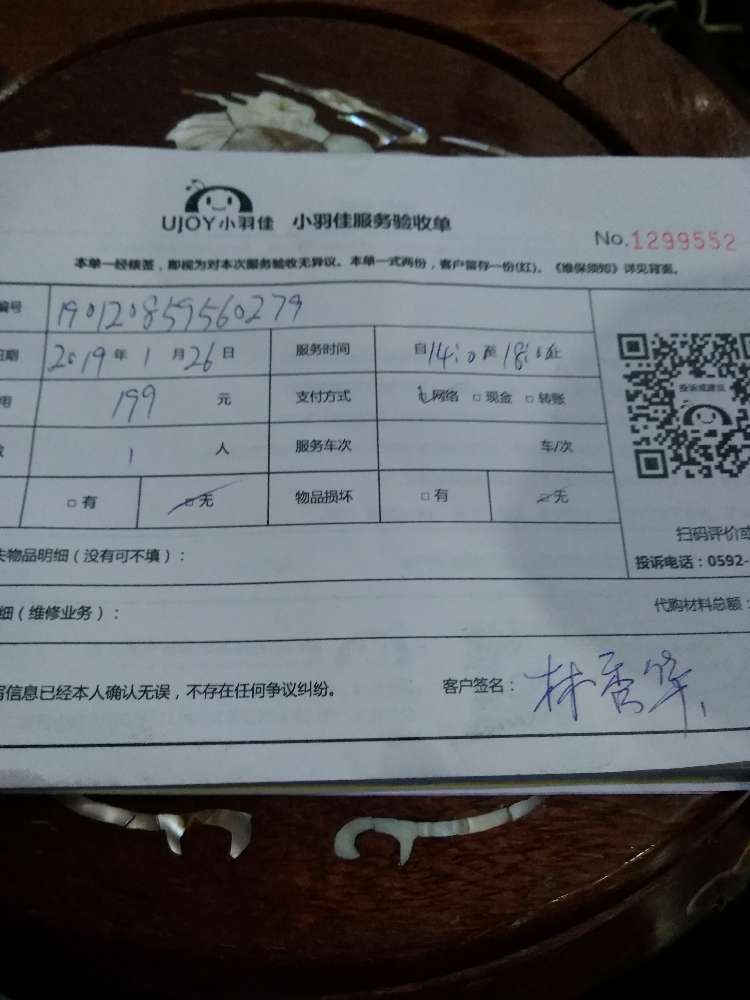 UJOY小羽佳 小羽佳服务验收单
No.1299552
本单一经核签，即视为对本次服务验收无异议。本单一式两份，客户留存一份(红)。《维保须知》详见背面。
编号 190120859560279
日期 2019年1月26日 服务时间 自14:0至18:00止
用 199 元 支付方式 网络 □现金 □转账
数 1 人 服务车次 车/次
□有 □无 物品损坏 □有 □无
投诉或建议
扫码评价或
投诉电话：0592-
失物品明细（没有可不填）：
细（维修业务）： 代购材料总额：
写信息已经本人确认无误，不存在任何争议纠纷。 客户签名：林香华